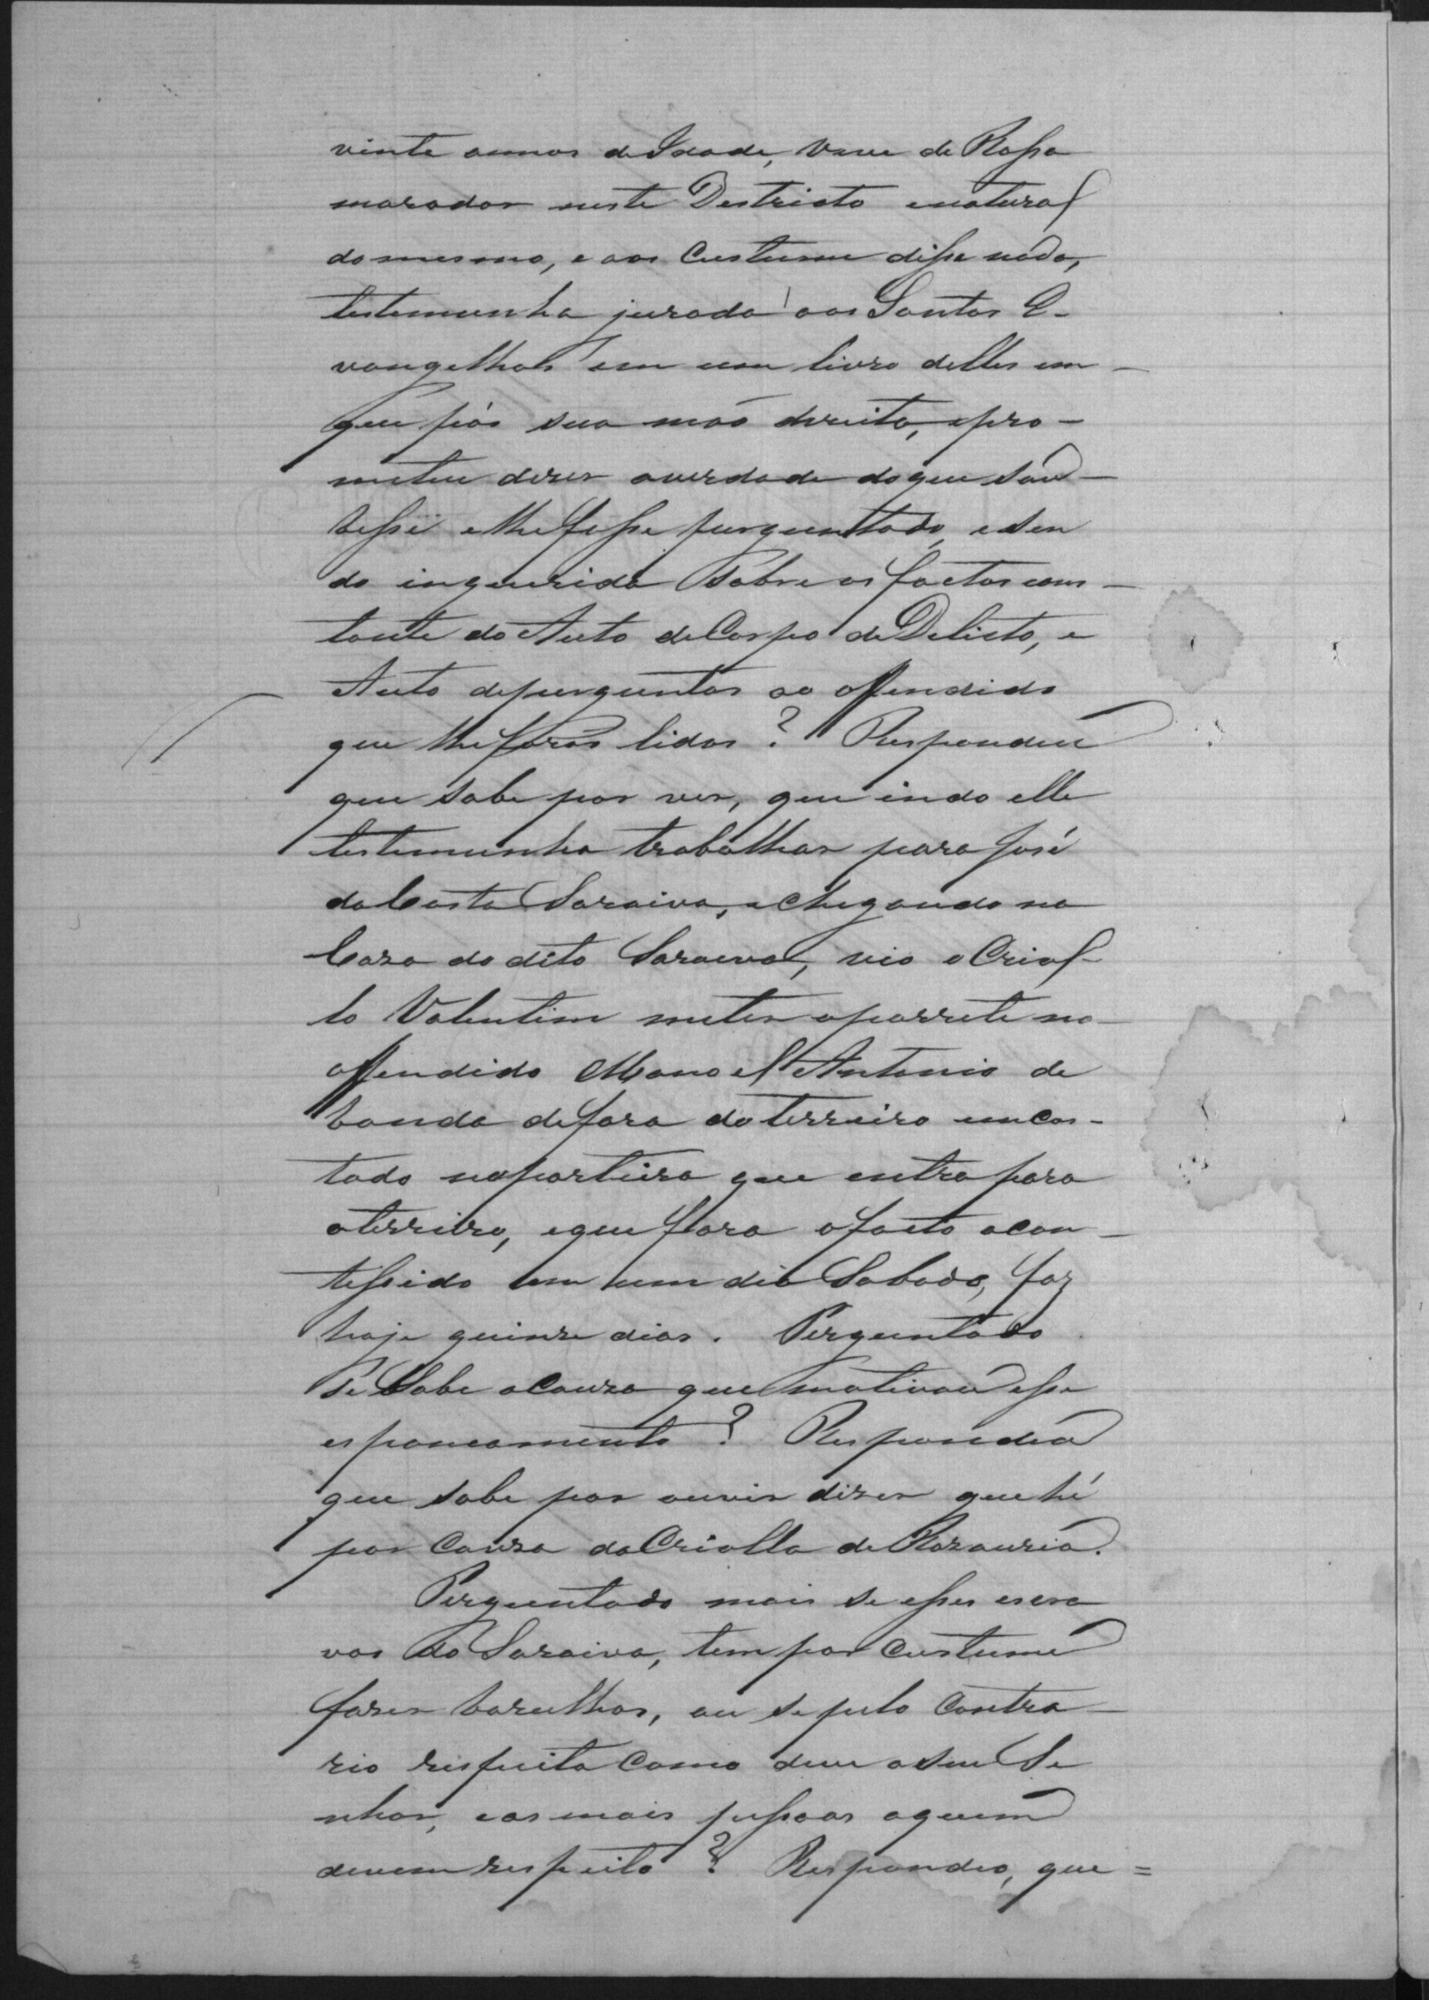 vinte annos de Idade, vive de Rossa
morador neste Destricto enatural
domesmo, e aos Custume disse nada,
testemunha jurada aos Santos E-
vangelhos em um livro delles em
que pôs sua mão direita, epro-
meteu dizer averdade doque sou-
besse elhe fosse perguntado, esen
do inquerido Sobre os factos cons-
tante do Auto de Corpo de Delicto, e
Auto deperguntas ao offendido
que lhe forão lidos? Respondeu
que sabe por ver, que indo elle
testemunha trabalhar para José
da Costa Saraiva, e chegando na
Caza do dito Saraiva, vio o Criol-
lo Valentim meter oporrete no
offendido Manoel Antonio de
banda defora doterreiro encos-
tado naporteira que entra para
oterreiro, eque fora ofacto acon-
tessido em um dia Sabado, faz
hoje quinze dias. Perguntado
Se Sabe acauza que motivou esse
espancamento? Respondeo
que sabe por ouvir dizer que hé
por Cauza da Criolla de Rozauria.
Perguntado mais se esses escra
vos do Saraiva, tem por Custume
fazer barulhos, ou se pelo Contra-
rio respeita Como deve oseu Se
nhor, eas mais pessoas aquem
devem respeito? Respondeo, que =